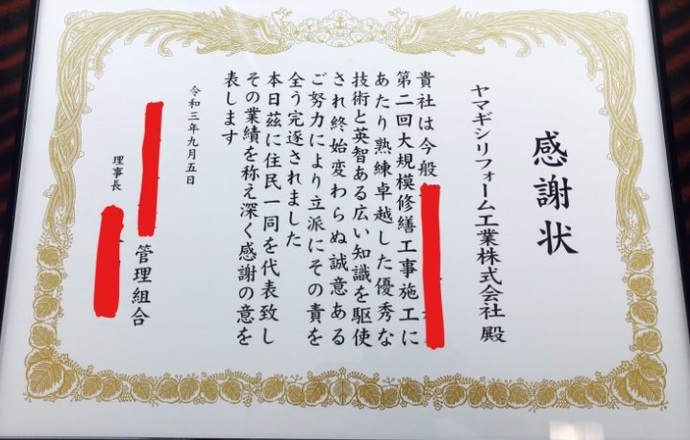 感謝状
ヤマギシリフォーム工業株式会社 殿
貴社は今般
第二回大規模修繕工事施工に
あたり熟練卓越した優秀な
技術と英智ある広い知識を駆使
され終始変わらぬ誠意ある
ご努力により立派にその責を
全う完逐されました
本日茲に住民一同を代表致し
その業績を称え深く感謝の意を
表します
令和三年九月五日
管理組合
理事長